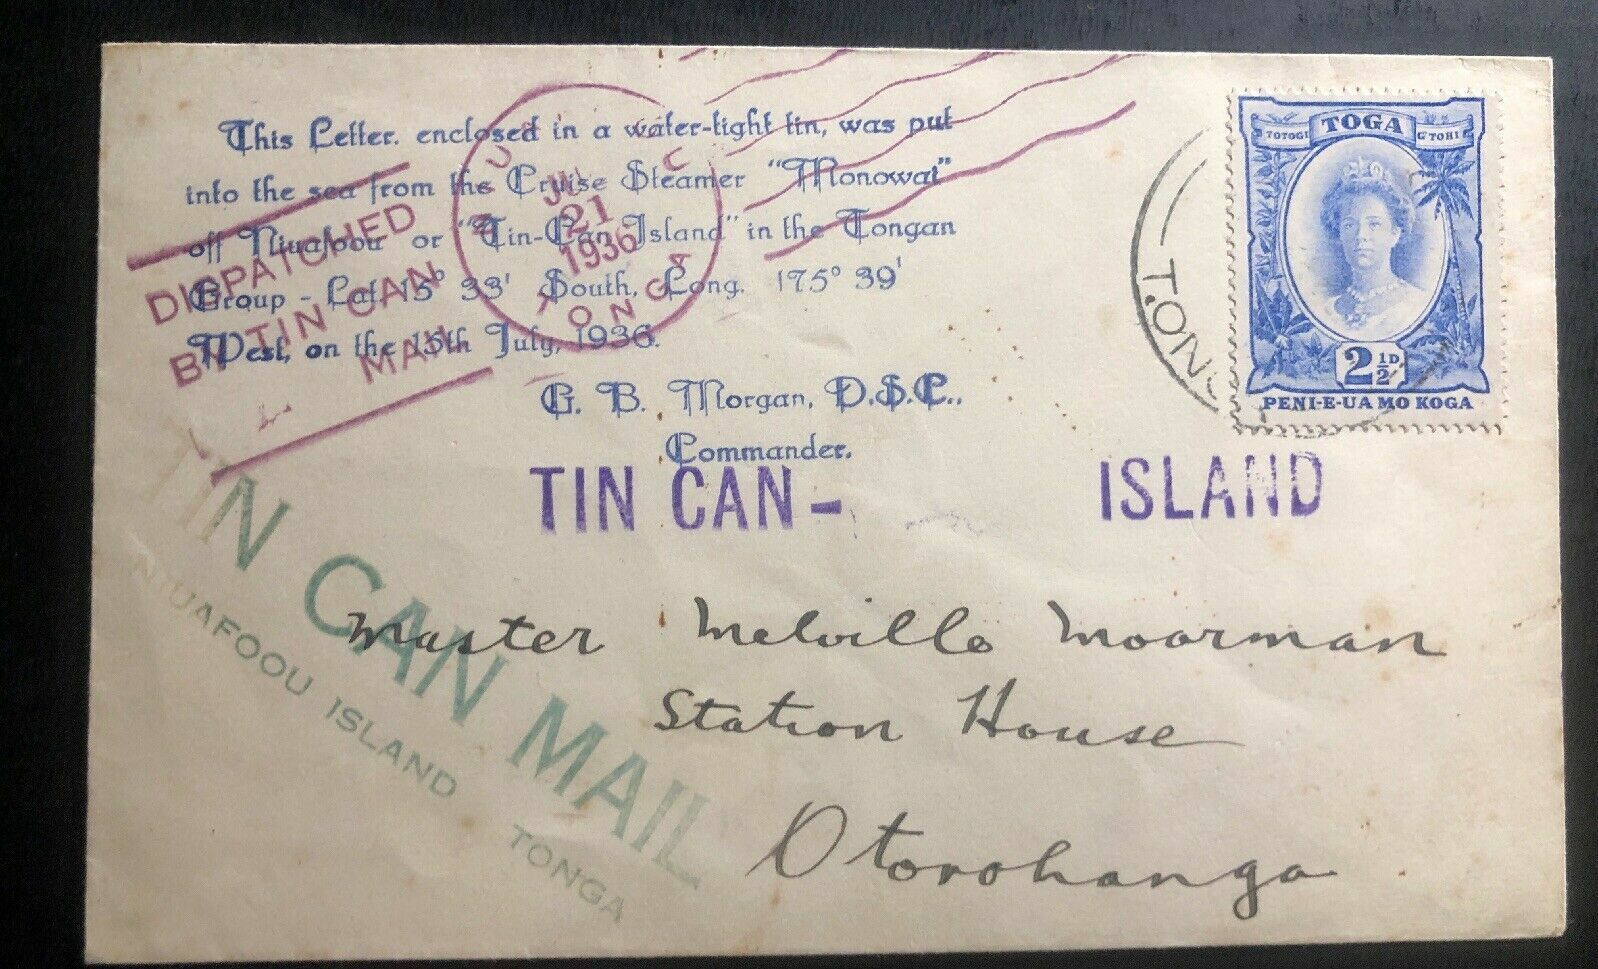 This Letter. enclosed in a water-tight tin, was put
into the sea from the Cruise Steamer "Monowai"
off Niuafoou or "Tin-Can Island" in the Tongan
Group - Lat. 15° 33' South, Long. 175° 39'
West, on the 15th July, 1936.
G. B. Morgan, D.S.C.,
Commander.
DISPATCHED
BY TIN CAN
MAIL
21
1936
TONGA
TOGA
TOTOGI
TOHI
2½D
PENI-E-UA MO KOGA
TIN CAN- ISLAND
TIN CAN MAIL
NIUAFOOU ISLAND TONGA
Master Melville Moorman
Station House
Otorohanga